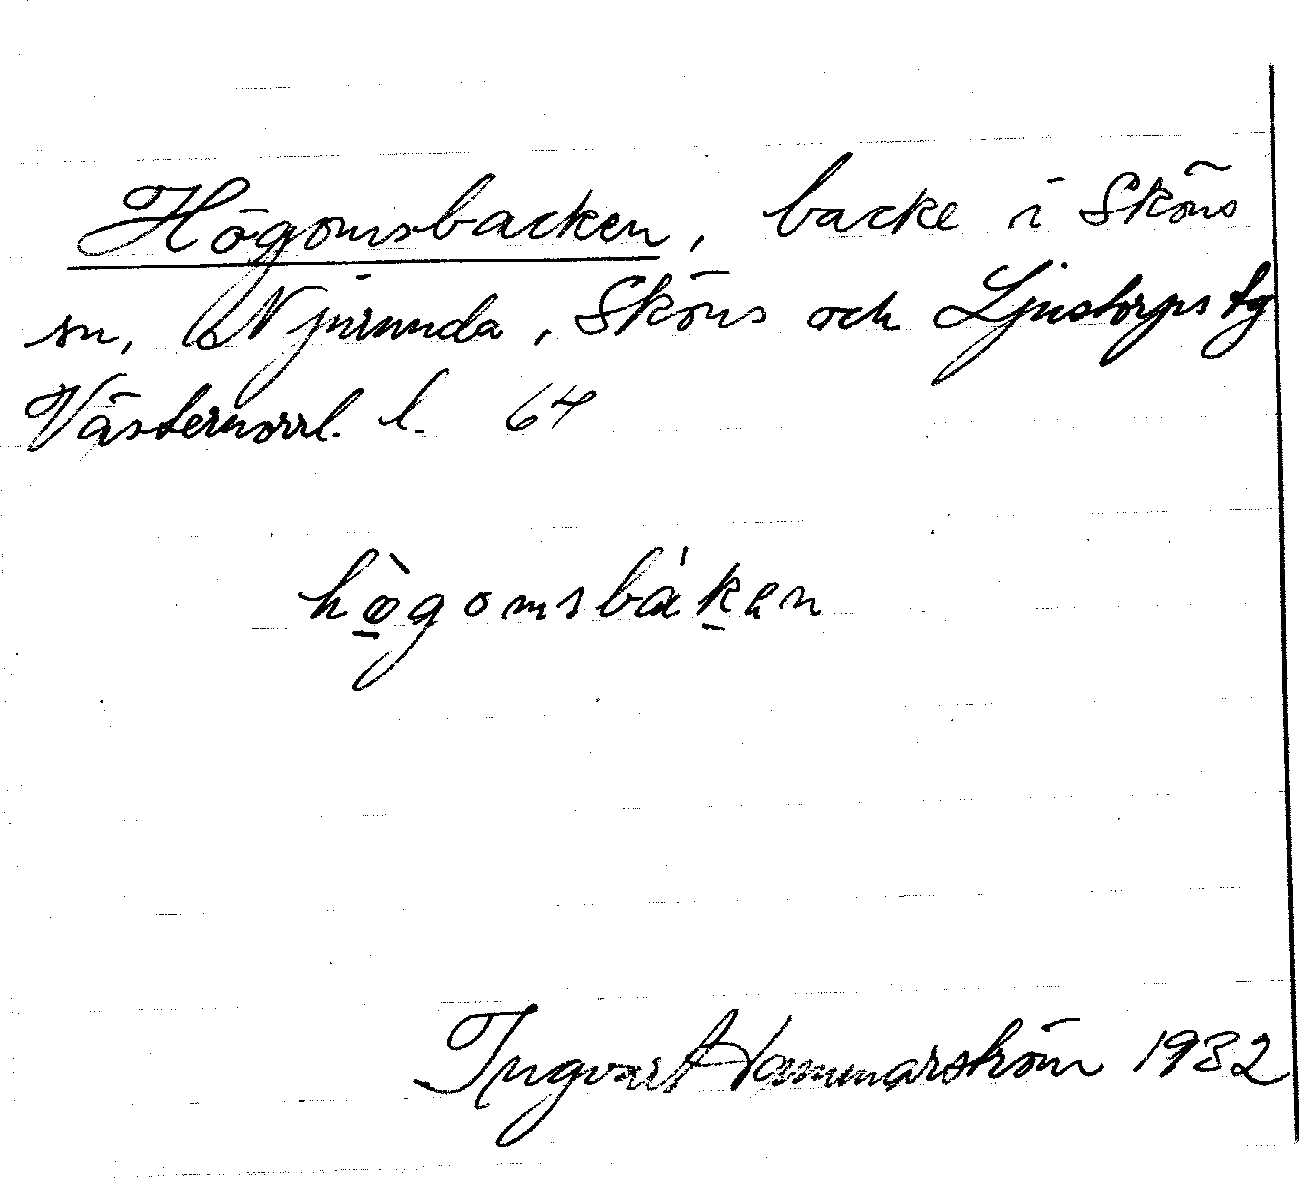 Högomsbacken, backe i Sköns
sn, Njurunda, Sköns och Ljustorps tg
Västernorrl. l. 64
hö̀gomsbáken
Ingvar Hammarström 1932